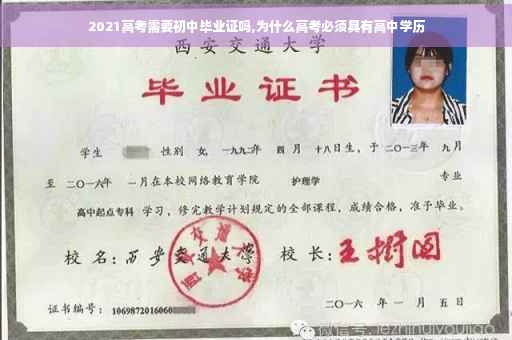 2021高考需要初中毕业证吗,为什么高考必须具有高中学历
西安交通大学
毕业证书
学生 性别 女, 一九九二年 四月 十八日生, 于 二〇一三年 九月
至 二〇一六年 一月在本校网络教育学院 护理学 专业
高中起点专科 学习, 修完教学计划规定的全部课程, 成绩合格, 准予毕业。
校 名: 西安交通大学 校 长: 王树国
西安交通大学
证书编号: 1069872016060
二〇一六 年 一 月 五 日
微信号: jezhihuiyoujiao